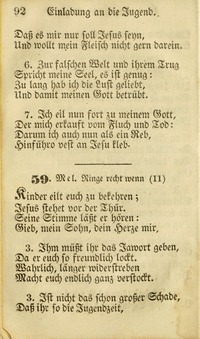 92 Einladung an die Jugend.
Daß es mir nur soll Jesus seyn,
Und wollt mein Fleisch nicht gern darein.
6. Zur falschen Welt und ihrem Trug
Spricht meine Seel, es ist genung:
Zu lang hab ich die Lust geliebt,
Und damit meinen Gott betrübt.
7. Ich eil nun fort zu meinem Gott,
Der mich erkauft vom Fluch und Tod:
Darum ich nun auch als ein Reb,
Hinführo vest an Jesu kleb.
59. Mel. Ringe recht wenn (11)
Kinder eilt euch zu bekehren;
Jesus stehet vor der Thür.
Seine Stimme läßt er hören:
Gieb, mein Sohn, dein Herze mir,
3. Ihm müßt ihr das Jawort geben,
Da er euch so freundlich lockt.
Wahrlich, länger widerstreben
Macht euch endlich ganz verstockt.
3. Ist nicht das schon großer Schade,
Daß ihr so die Jugendzeit,